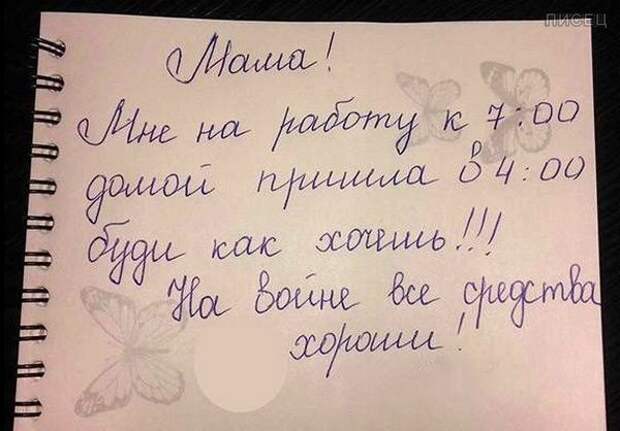 писец
Мама!
Мне на работу к 7:00
домой пришла в 4:00
буди как хочешь!!!
На войне все средства
хороши!